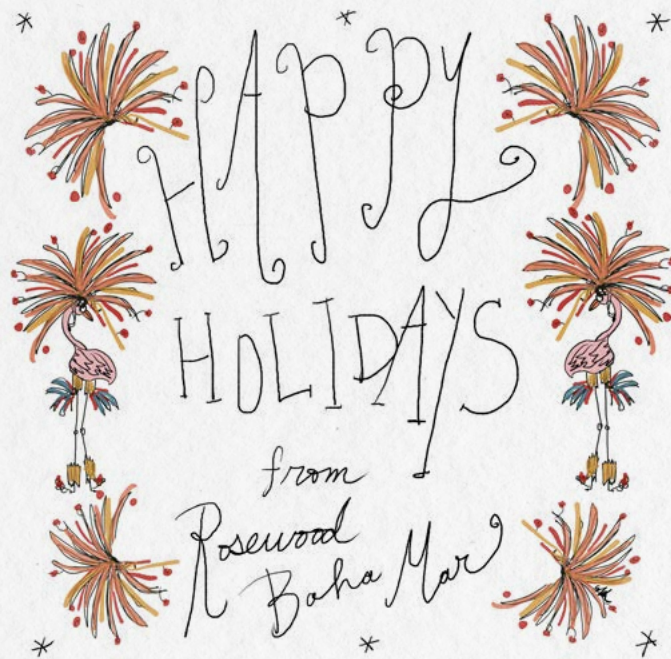 HAPPY
HOLIDAYS
from
Rosewood
Baha Mar